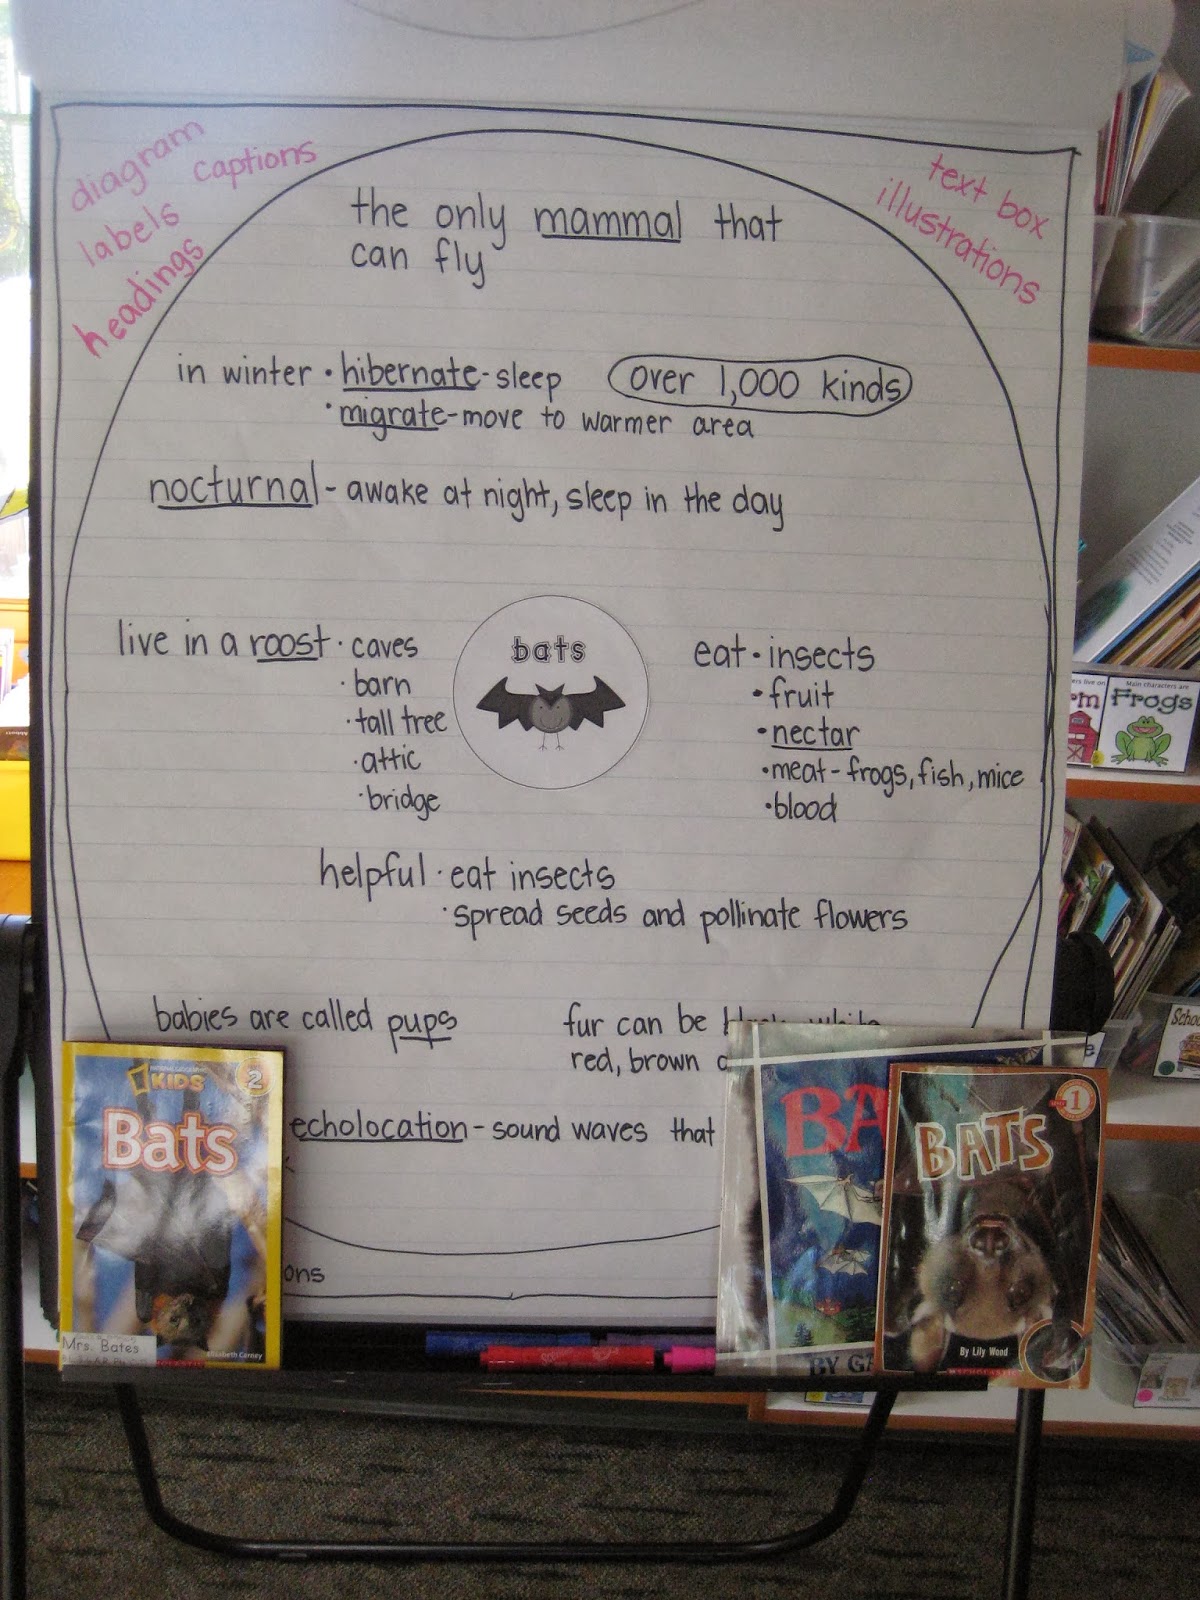 diagram
captions
labels
headings
text box
illustrations
the only mammal that
can fly
in winter • hibernate - sleep
over 1,000 kinds
• migrate - move to warmer area
nocturnal - awake at night, sleep in the day
live in a roost • caves
• barn
• tall tree
• attic
• bridge
bats
eat • insects
• fruit
• nectar
• meat - frogs, fish, mice
• blood
helpful • eat insects
• spread seeds and pollinate flowers
babies are called pups
fur can be black, white
red, brown
echolocation - sound waves that
ons
NATIONAL GEOGRAPHIC
KIDS
2
Bats
Mrs. Bates
Elizabeth Carney
SCHOLASTIC
BA
BY GA
1
BATS
By Lily Wood
SCHOLASTIC
Main characters are
Frogs
rm